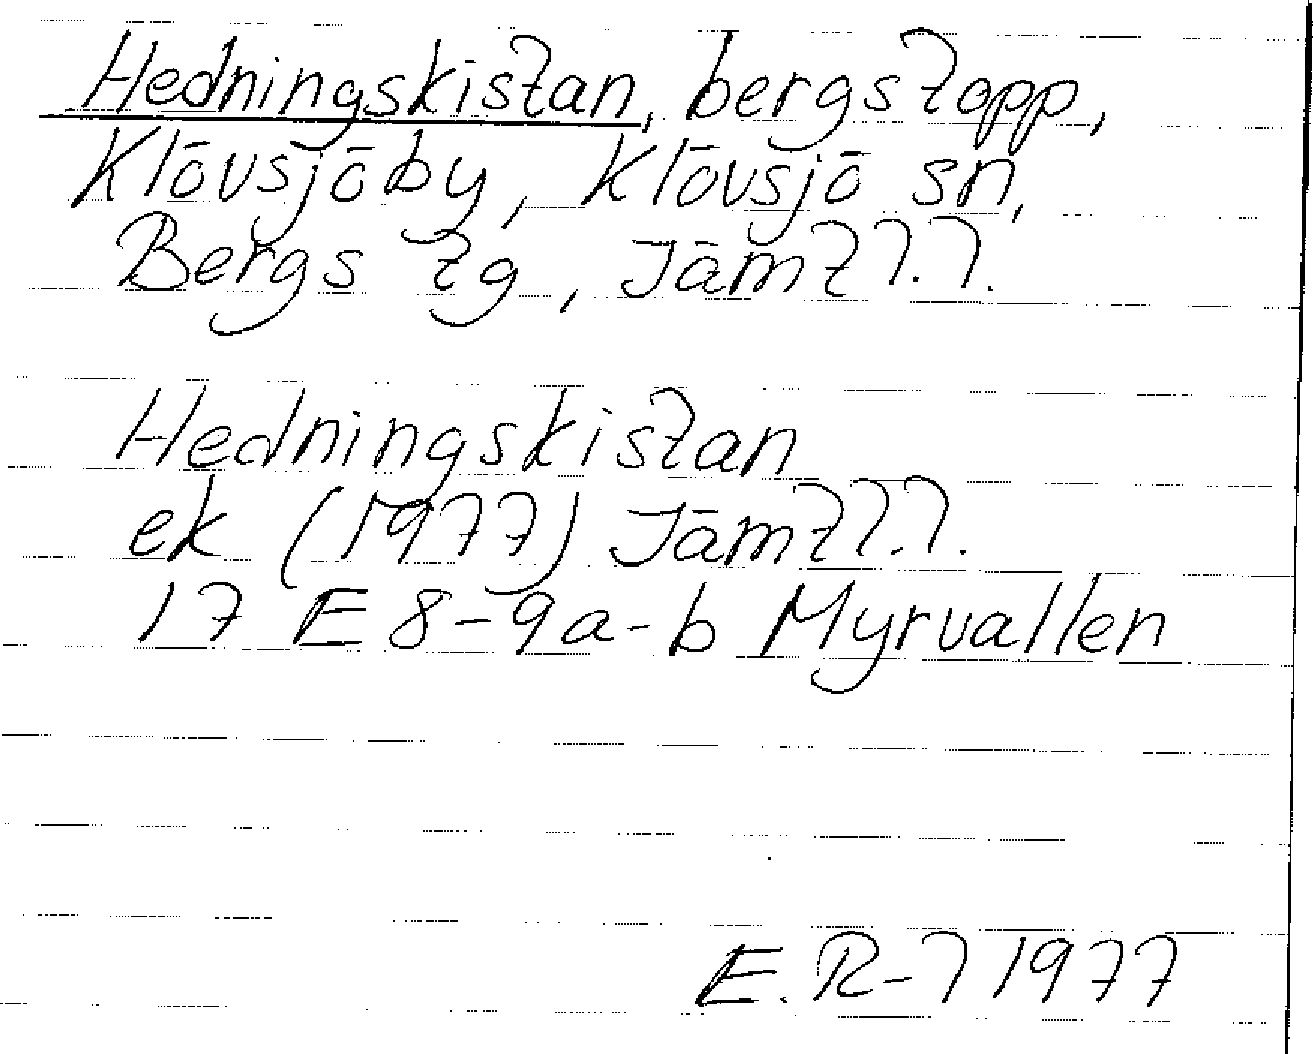 Hedningskistan, bergstopp,
Klövsjöby, Klövsjö sn,
Bergs tg, Jämtl.l.
Hedningskistan
ek (1977) Jämtl.l.
17 E 8-9a-b Myrvallen
E.R-l 1977